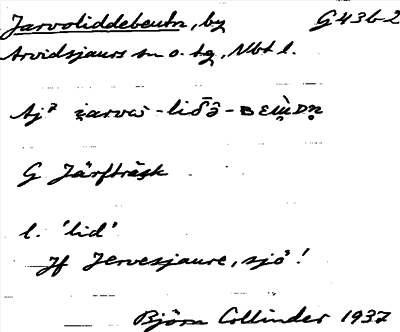 Jarvoliddebeutn, by G43b2
Arvidsjaurs sn o. tg, Nbt l.
Aj²
G Järfträsk
l. 'lid'
Jf Jervesjaure, sjö!
Björn Collinder 1937